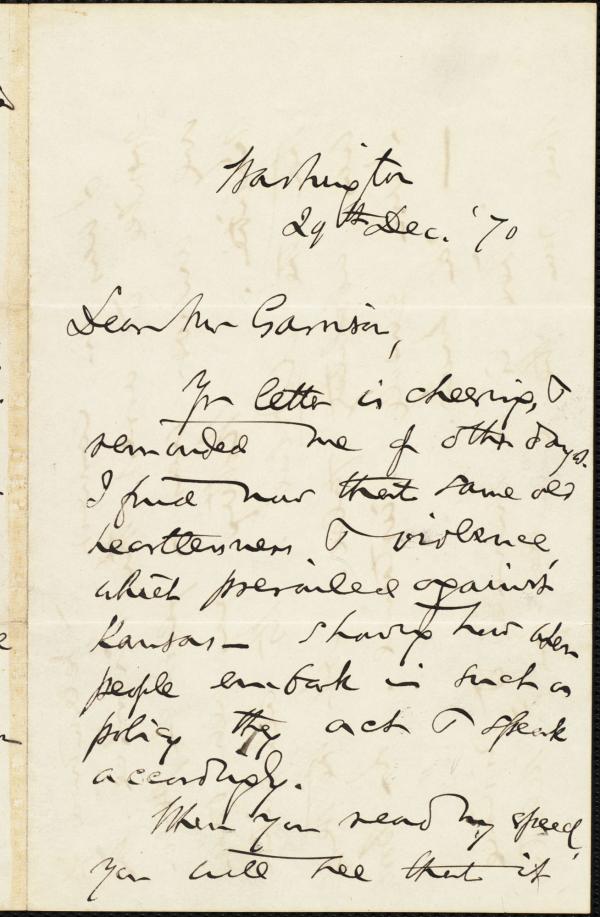 Washington
29th Dec. '70
Dear Mr Garrison,
Yr letter is cheering, &
reminded me of other days.
I find now that same old
heartlessness & violence
which prevailed against
Kansas — showing how when
people embark in such a
policy they act & speak
accordingly.
When you read my speech,
you will see that it